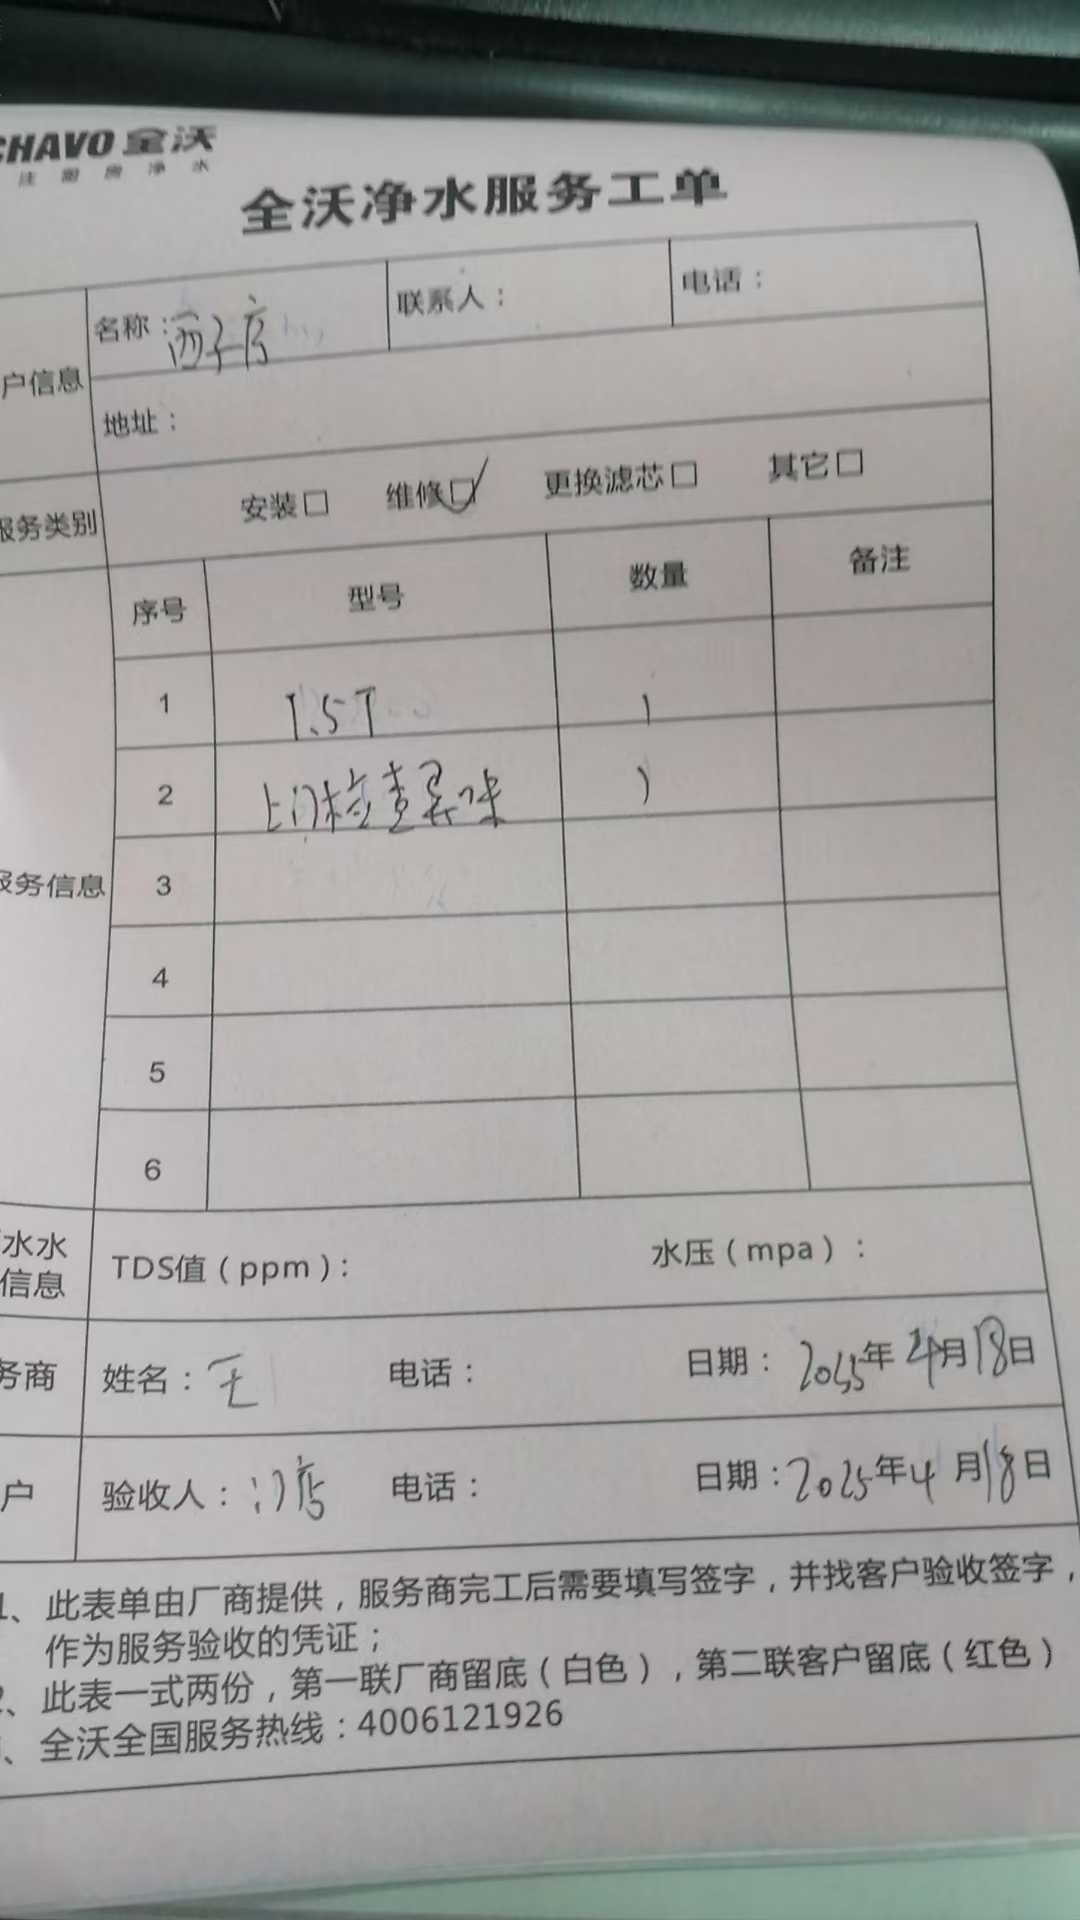 CHAVO 全沃
注册商净水
全沃净水服务工单
户信息
名称：西子店
联系人：
电话：
地址：
服务类别
安装□ 维修□✓ 更换滤芯□ 其它□
服务信息
序号 型号 数量 备注
1 1.5T 1
2 上门检查异味 1
3
4
5
6
水水
信息
TDS值（ppm）：
水压（mpa）：
务商
姓名：王 电话： 日期：2025年4月18日
户
验收人：门店 电话： 日期：2025年4月18日
1、此表单由厂商提供，服务商完工后需要填写签字，并找客户验收签字，
作为服务验收的凭证；
2、此表一式两份，第一联厂商留底（白色），第二联客户留底（红色）
、全沃全国服务热线：4006121926